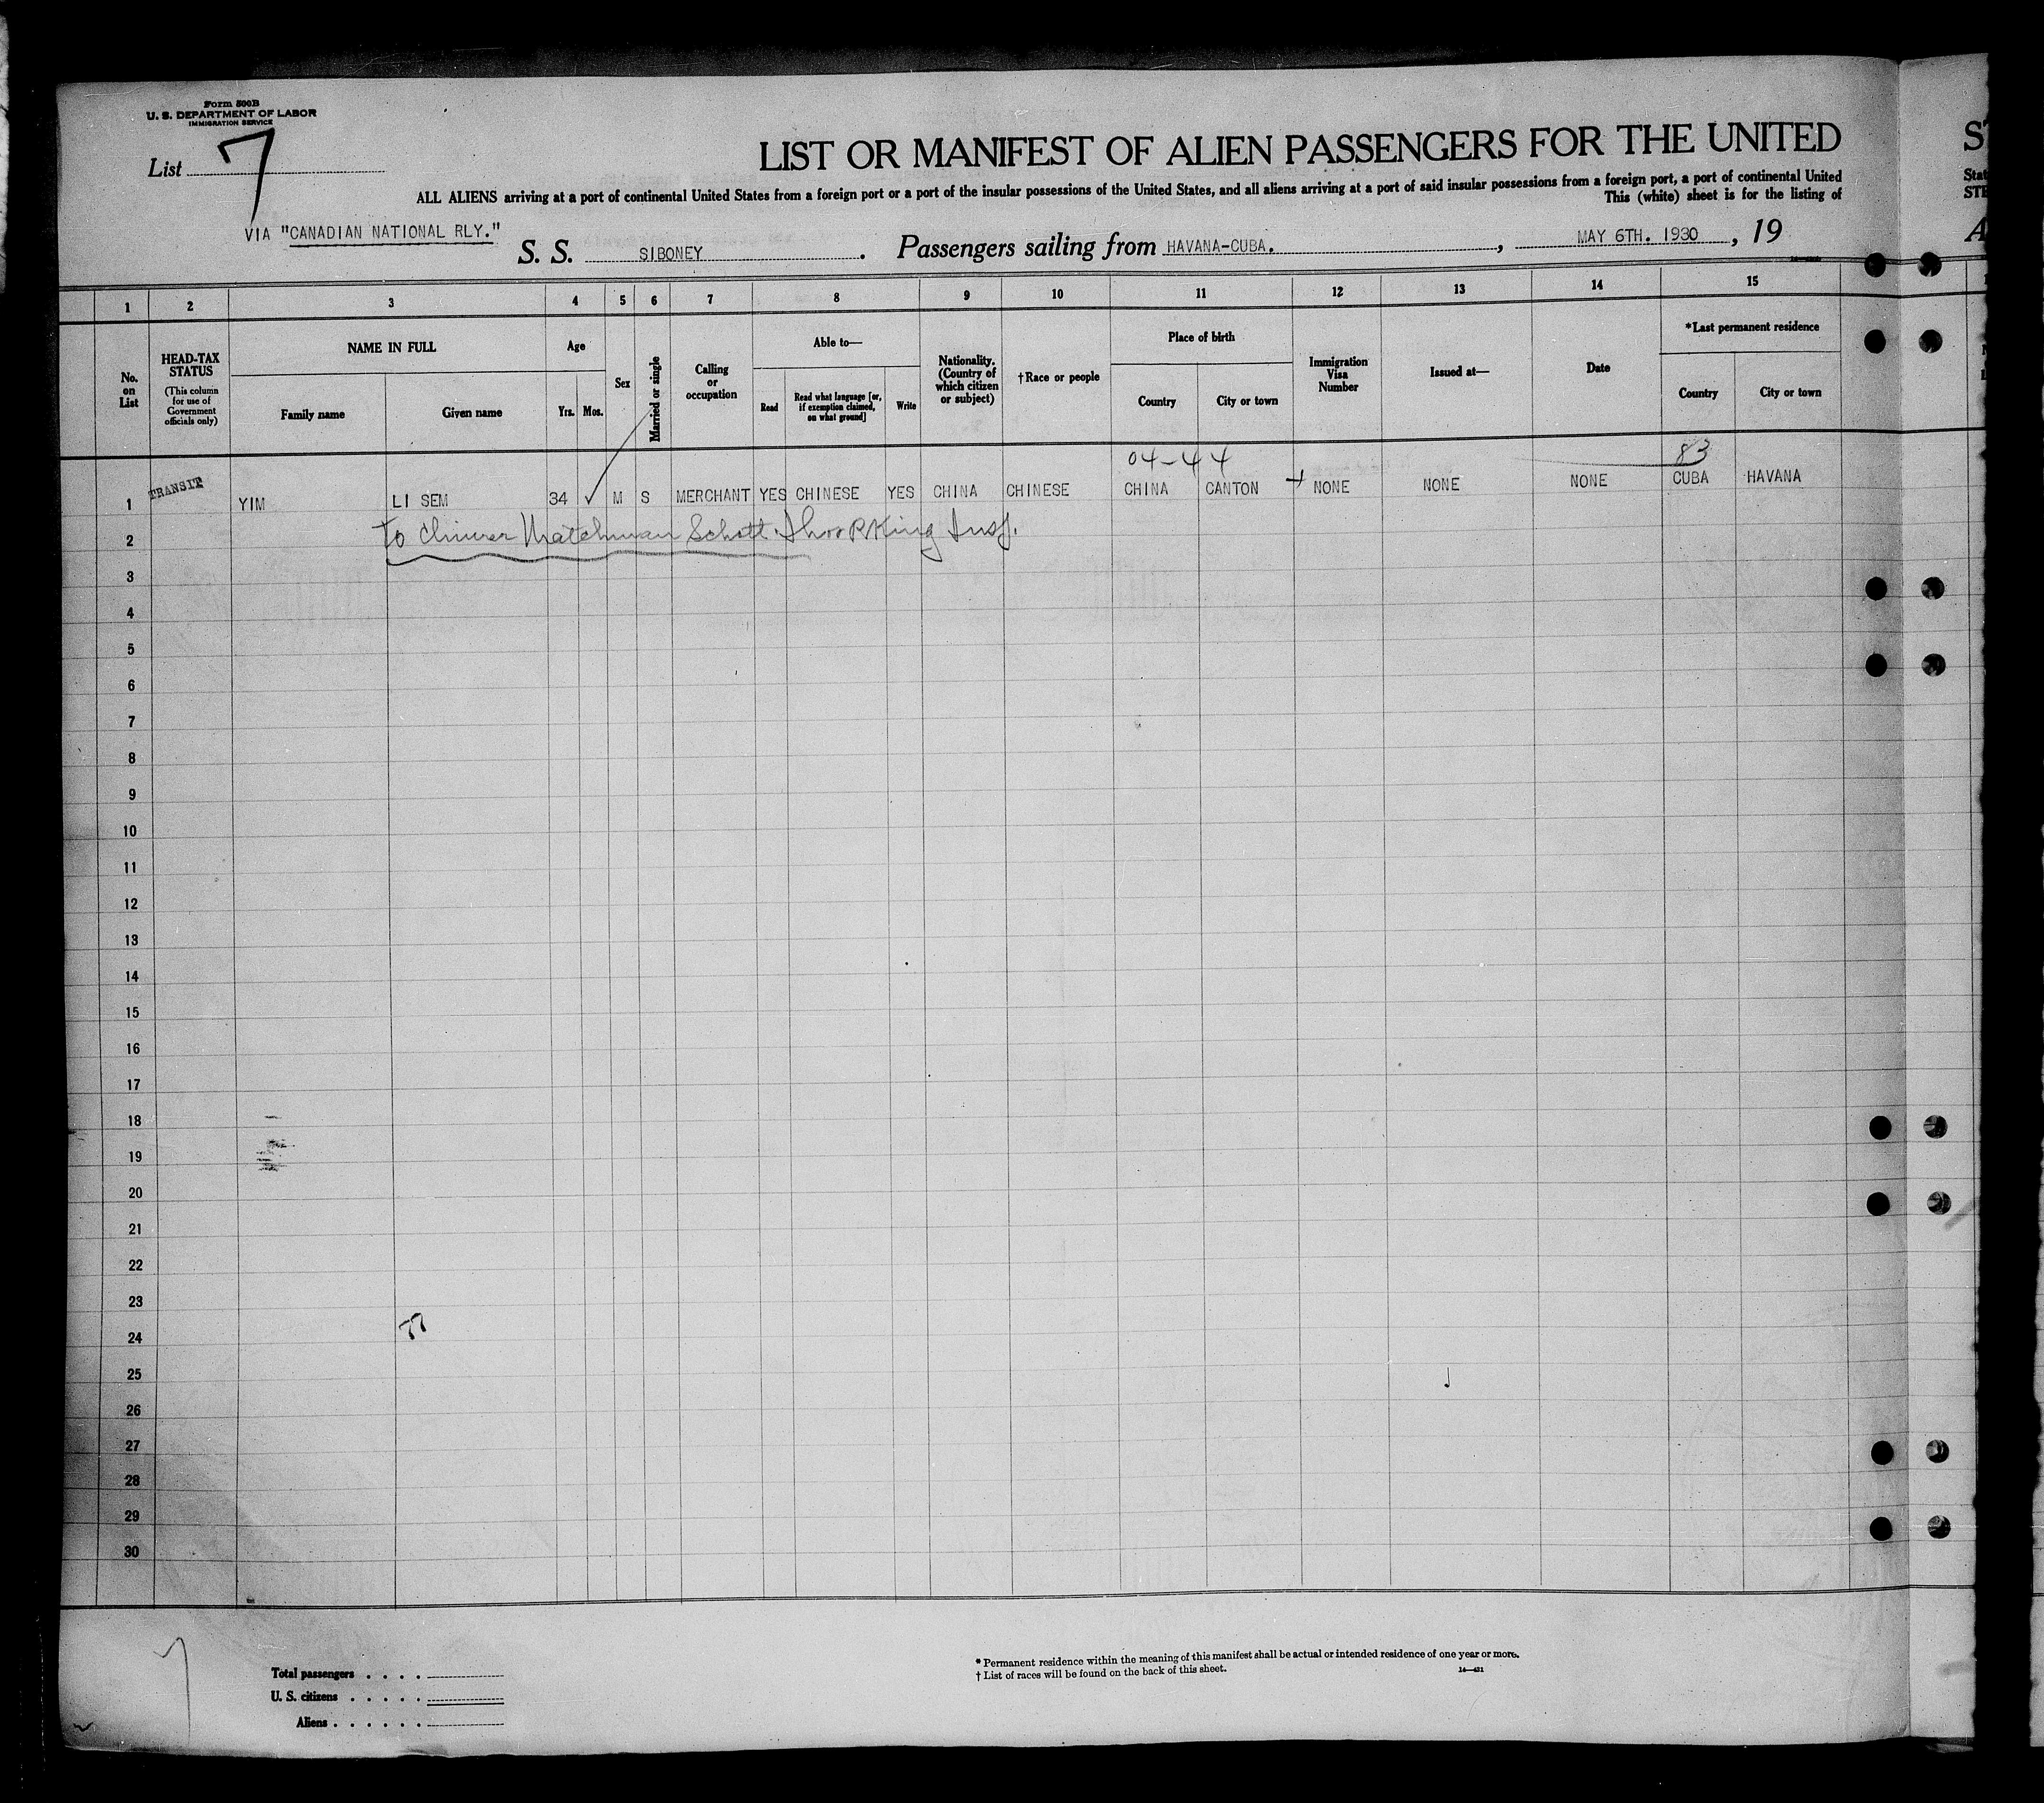 Form 500B
U. S. DEPARTMENT OF LABOR
IMMIGRATION SERVICE
List 7
LIST OR MANIFEST OF ALIEN PASSENGERS FOR THE UNITED
ALL ALIENS arriving at a port of continental United States from a foreign port or a port of the insular possessions of the United States, and all aliens arriving at a port of said insular possessions from a foreign port, a port of continental United
This (white) sheet is for the listing of
VIA "CANADIAN NATIONAL RLY."
S. S. SIBONEY. Passengers sailing from HAVANA-CUBA. , MAY 6TH. 1930 , 19
ST
Stat
STE
A
1 2 3 4 5 6 7 8 9 10 11 12 13 14 15
No. on List
HEAD-TAX STATUS
(This column for use of Government officials only)
NAME IN FULL
Family name
Given name
Age
Yrs. Mos.
Sex
Married or single
Calling or occupation
Able to—
Read
Read what language [or, if exemption claimed, on what ground]
Write
Nationality. (Country of which citizen or subject)
†Race or people
Place of birth
Country
City or town
Immigration Visa Number
Issued at—
Date
*Last permanent residence
Country
City or town
04-44 83
1 TRANSIT YIM LI SEM 34 ✓ M S MERCHANT YES CHINESE YES CHINA CHINESE CHINA CANTON + NONE NONE NONE CUBA HAVANA
2 To Watchman Schott. King Insp.
3
4
5
6
7
8
9
10
11
12
13
14
15
16
17
18
19
20
21
22
23
24
25
26
27
28
29
30
Total passengers . . . .
U. S. citizens . . . . .
Aliens . . . . . .
* Permanent residence within the meaning of this manifest shall be actual or intended residence of one year or more.
† List of races will be found on the back of this sheet.
14—431